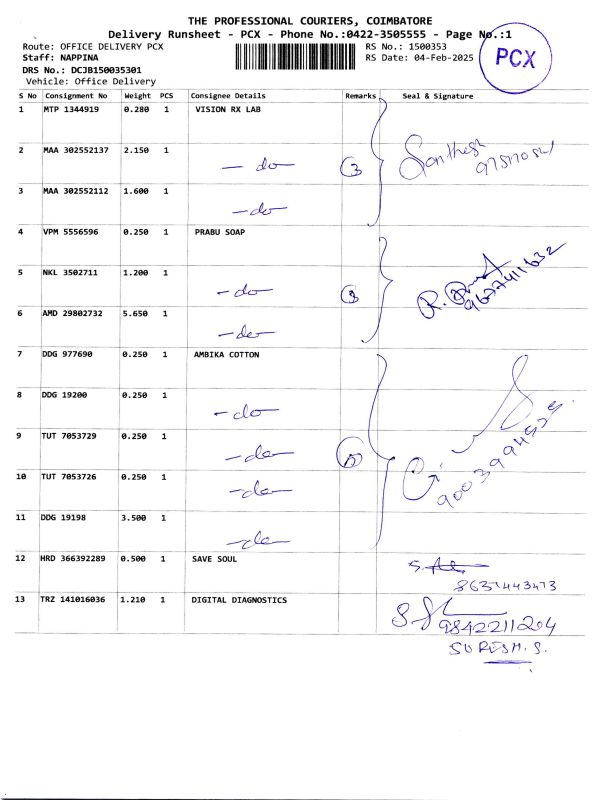 THE PROFESSIONAL COURIERS, COIMBATORE
Delivery Runsheet - PCX - Phone No.:0422-3505555 - Page No.:1
Route: OFFICE DELIVERY PCX RS No.: 1500353
Staff: NAPPINA RS Date: 04-Feb-2025
PCX
DRS No.: DCJB150035301
Vehicle: Office Delivery
S No Consignment No Weight PCS Consignee Details Remarks Seal & Signature
1 MTP 1344919 0.280 1 VISION RX LAB
2 MAA 302552137 2.150 1 - do 3 Santhosh
3 MAA 302552112 1.600 1 - do
4 VPM 5556596 0.250 1 PRABU SOAP
5 NKL 3502711 1.200 1 - do 3 9677411632
6 AMD 29802732 5.650 1 - do
7 DDG 977690 0.250 1 AMBIKA COTTON
8 DDG 19200 0.250 1 - do
9 TUT 7053729 0.250 1 - do
10 TUT 7053726 0.250 1 - do
11 DDG 19198 3.500 1 - do
12 HRD 366392289 0.500 1 SAVE SOUL
13 TRZ 141016036 1.210 1 DIGITAL DIAGNOSTICS
9842211204
SURESH. S.